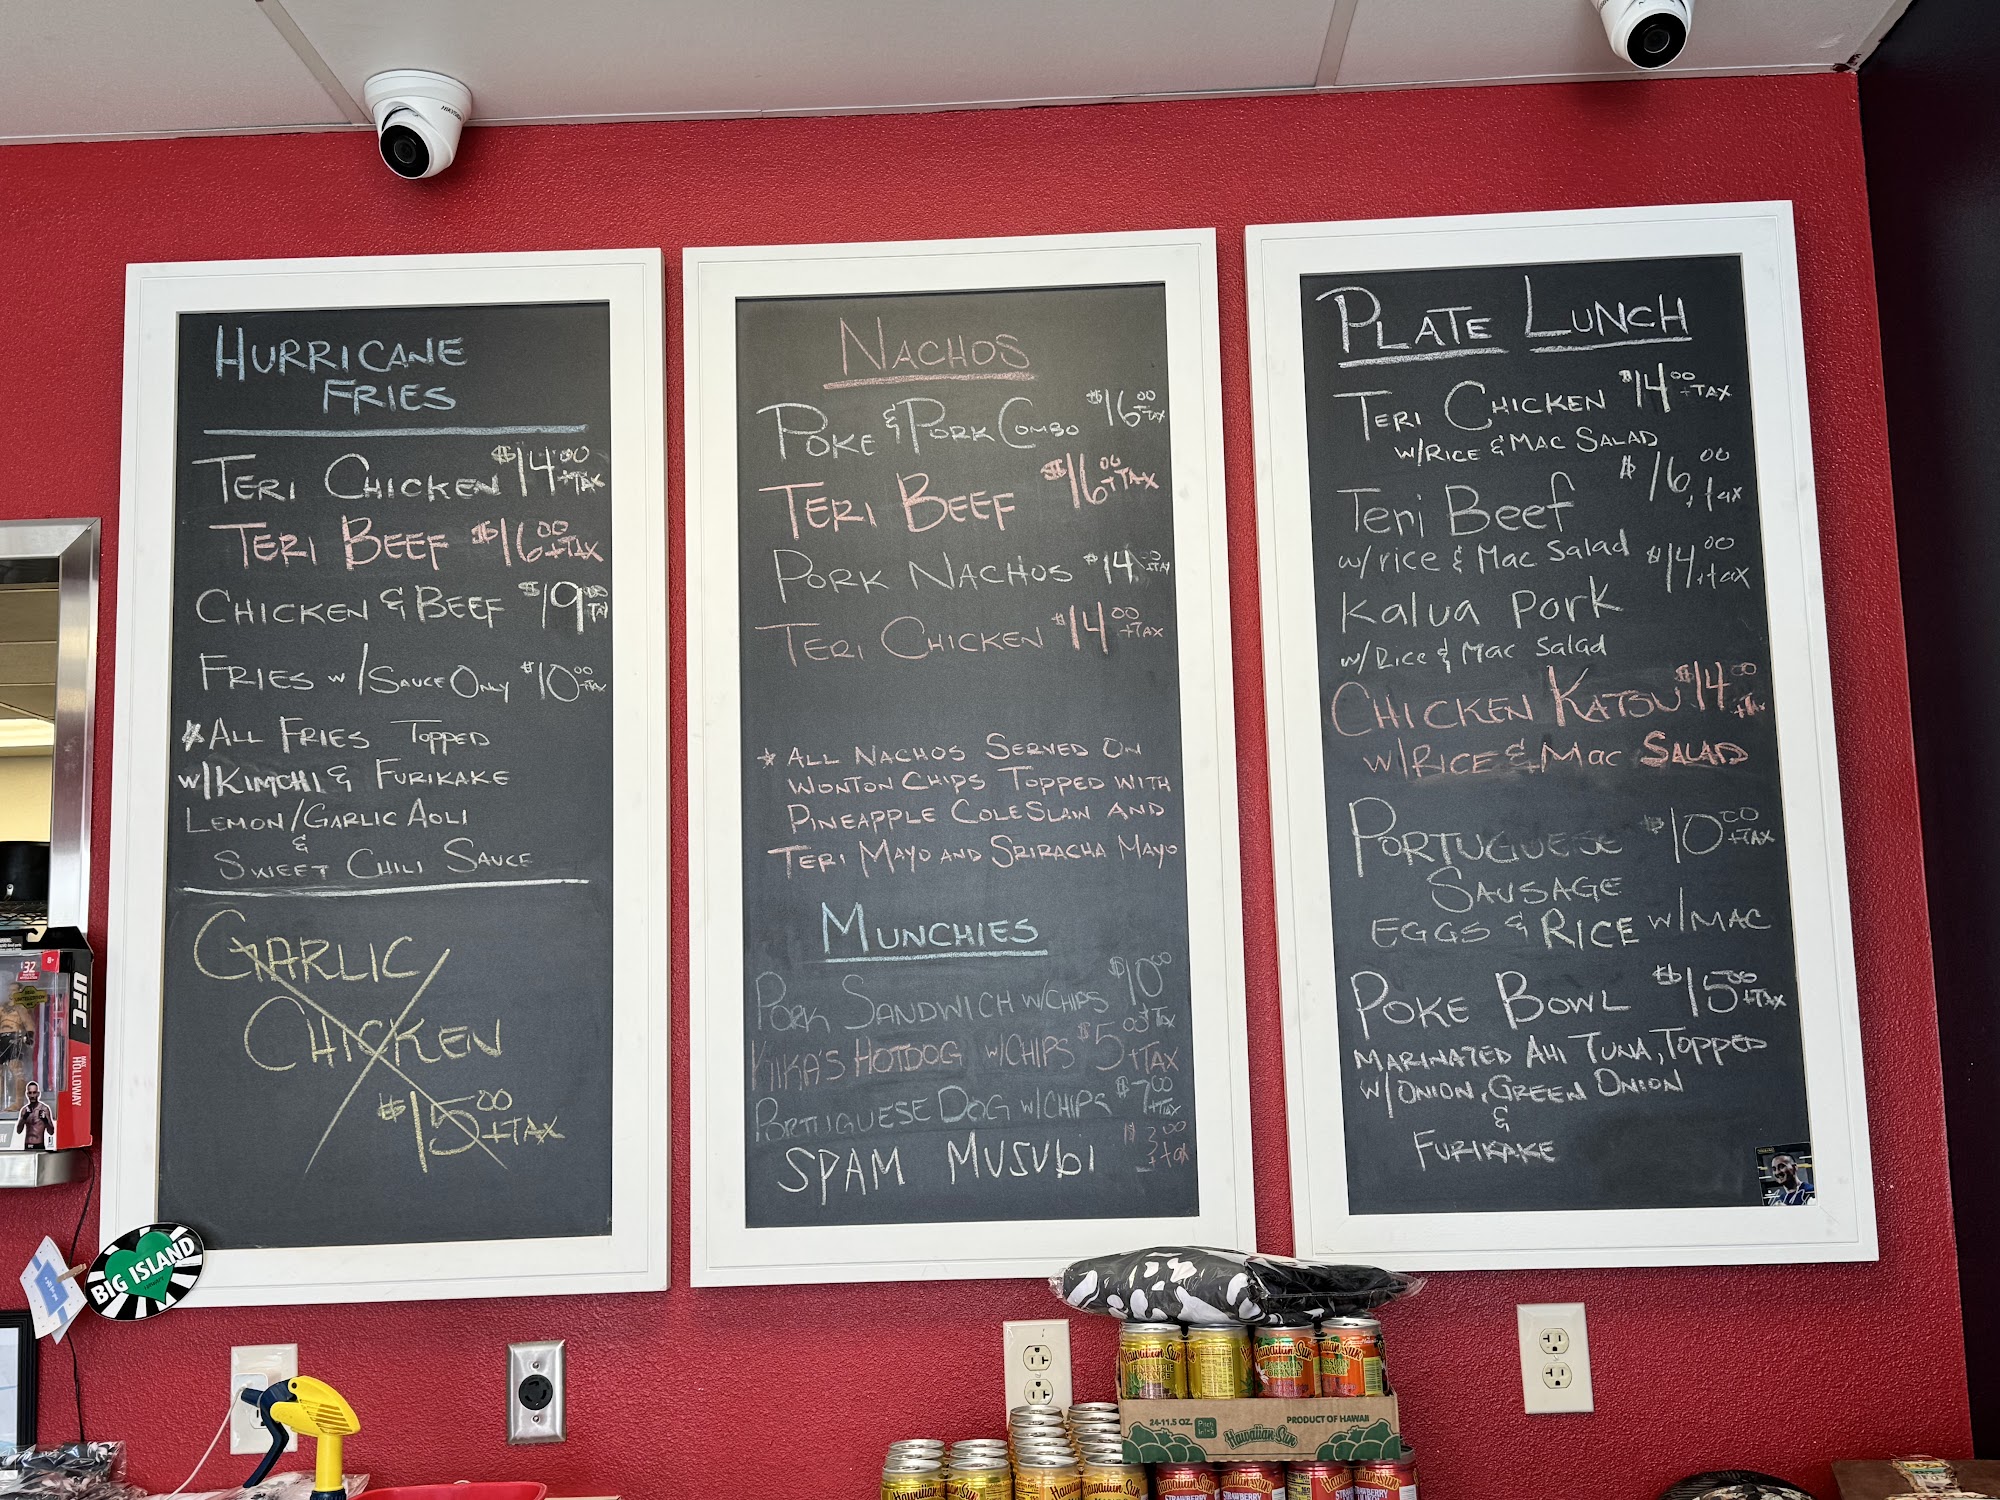 HIKVISION
HURRICANE
FRIES
TERI CHICKEN $14.00 +TAX
TERI BEEF $16.00 +TAX
CHICKEN & BEEF $19.00 +TAX
FRIES W/SAUCE ONLY $10.00 +TAX
*ALL FRIES TOPPED
W/KIMCHI & FURIKAKE
LEMON/GARLIC AOLI
&
SWEET CHILI SAUCE
GARLIC
CHICKEN
$15.00 +TAX
NACHOS
POKE & PORK COMBO $16.00 +TAX
TERI BEEF $16.00 +TAX
PORK NACHOS $14.00 +TAX
TERI CHICKEN $14.00 +TAX
* ALL NACHOS SERVED ON
WONTON CHIPS TOPPED WITH
PINEAPPLE COLESLAW AND
TERI MAYO AND SRIRACHA MAYO
MUNCHIES
PORK SANDWICH W/CHIPS $10.00 +TAX
KIKA'S HOTDOG W/CHIPS $5.00 +TAX
PORTUGUESE DOG W/CHIPS $7.00 +TAX
SPAM MUSUBI $3.00 +tax
PLATE LUNCH
TERI CHICKEN $14.00 +TAX
W/RICE & MAC SALAD
Teri Beef $16.00 +tax
w/rice & Mac Salad
Kalua Pork $14.00 +tax
w/Rice & Mac Salad
CHICKEN KATSU $14.00 +TAX
W/RICE & MAC SALAD
PORTUGUESE $10.00 +TAX
SAUSAGE
EGGS & RICE W/MAC
POKE BOWL $15.00 +TAX
MARINATED AHI TUNA, TOPPED
W/ONION, GREEN ONION
&
FURIKAKE
UFC
MAX HOLLOWAY
BIG ISLAND
Hawaiian Sun
PINEAPPLE
ORANGE
Hawaiian Sun
Hawaiian Sun
24-11.5 OZ.
PRODUCT OF HAWAII
Hawaiian Sun
Hawaiian Sun
Hawaiian Sun
STRAWBERRY